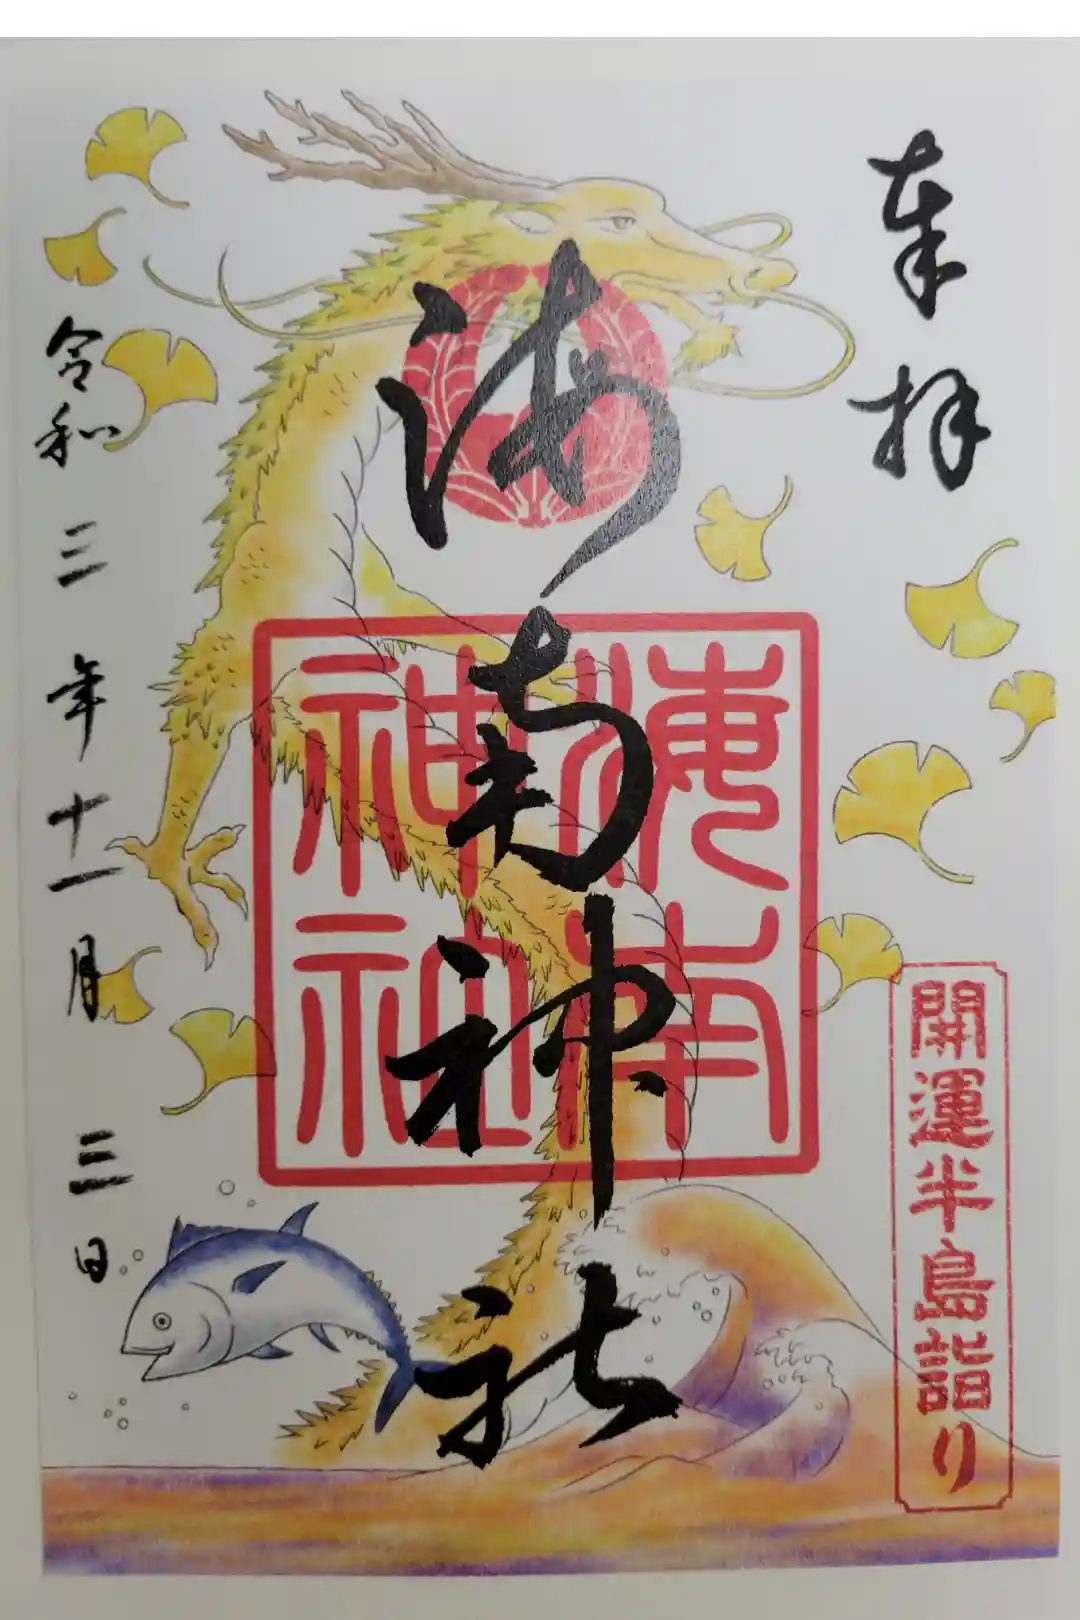 奉拝
海南神社
海南
神社
令和三年十一月三日
開運半島詣り